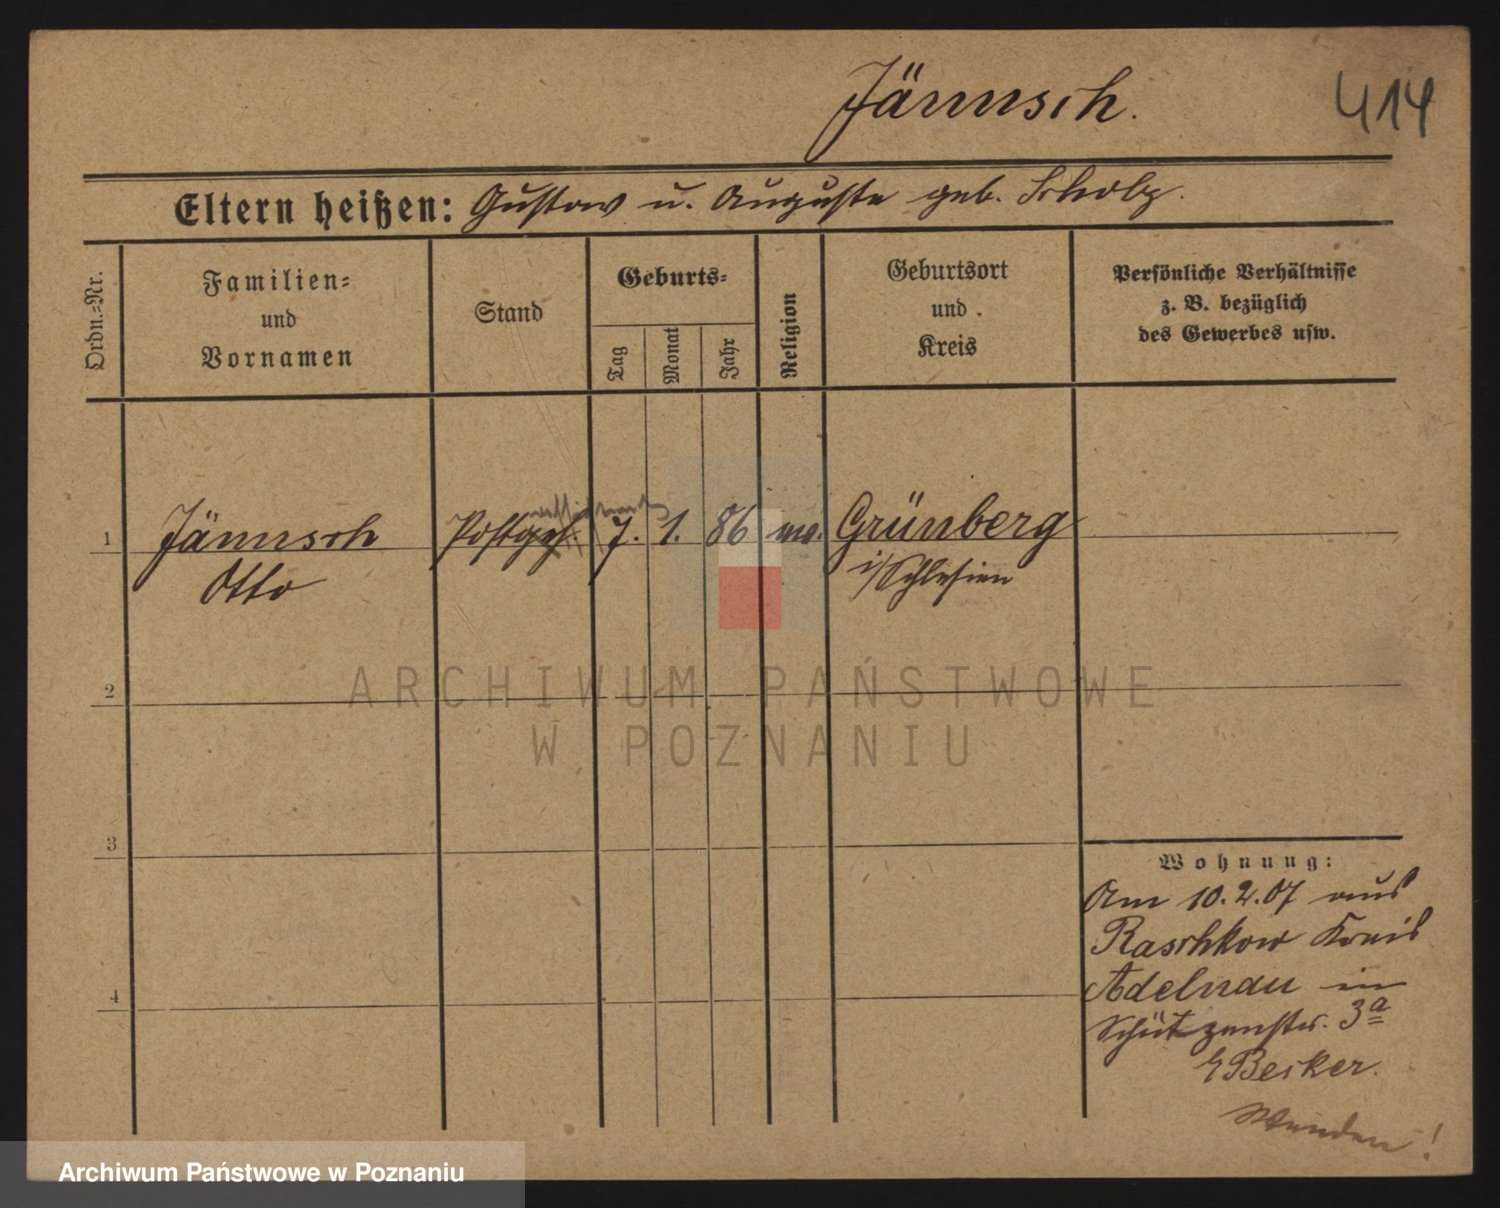 Jännsch.
414
Eltern heißen: Gustav u. Auguste geb. Scholz.
Ordn.-Nr.
Familien-
und
Vornamen
Stand
Geburts-
Tag
Monat
Jahr
Religion
Geburtsort
und
Kreis
Persönliche Verhältnisse
z. B. bezüglich
des Gewerbes usw.
1
Jännsch
Otto
Postgeh.
7. 1. 86
Grünberg
i/Schlesien
2
ARCHIWUM PAŃSTWOWE
W POZNANIU
3
Wohnung:
Am 10.2.07 aus
Raschkow Kreis
Adelnau in
Schützenstr. 3a
b/Becker.
Wenden!
4
Archiwum Państwowe w Poznaniu